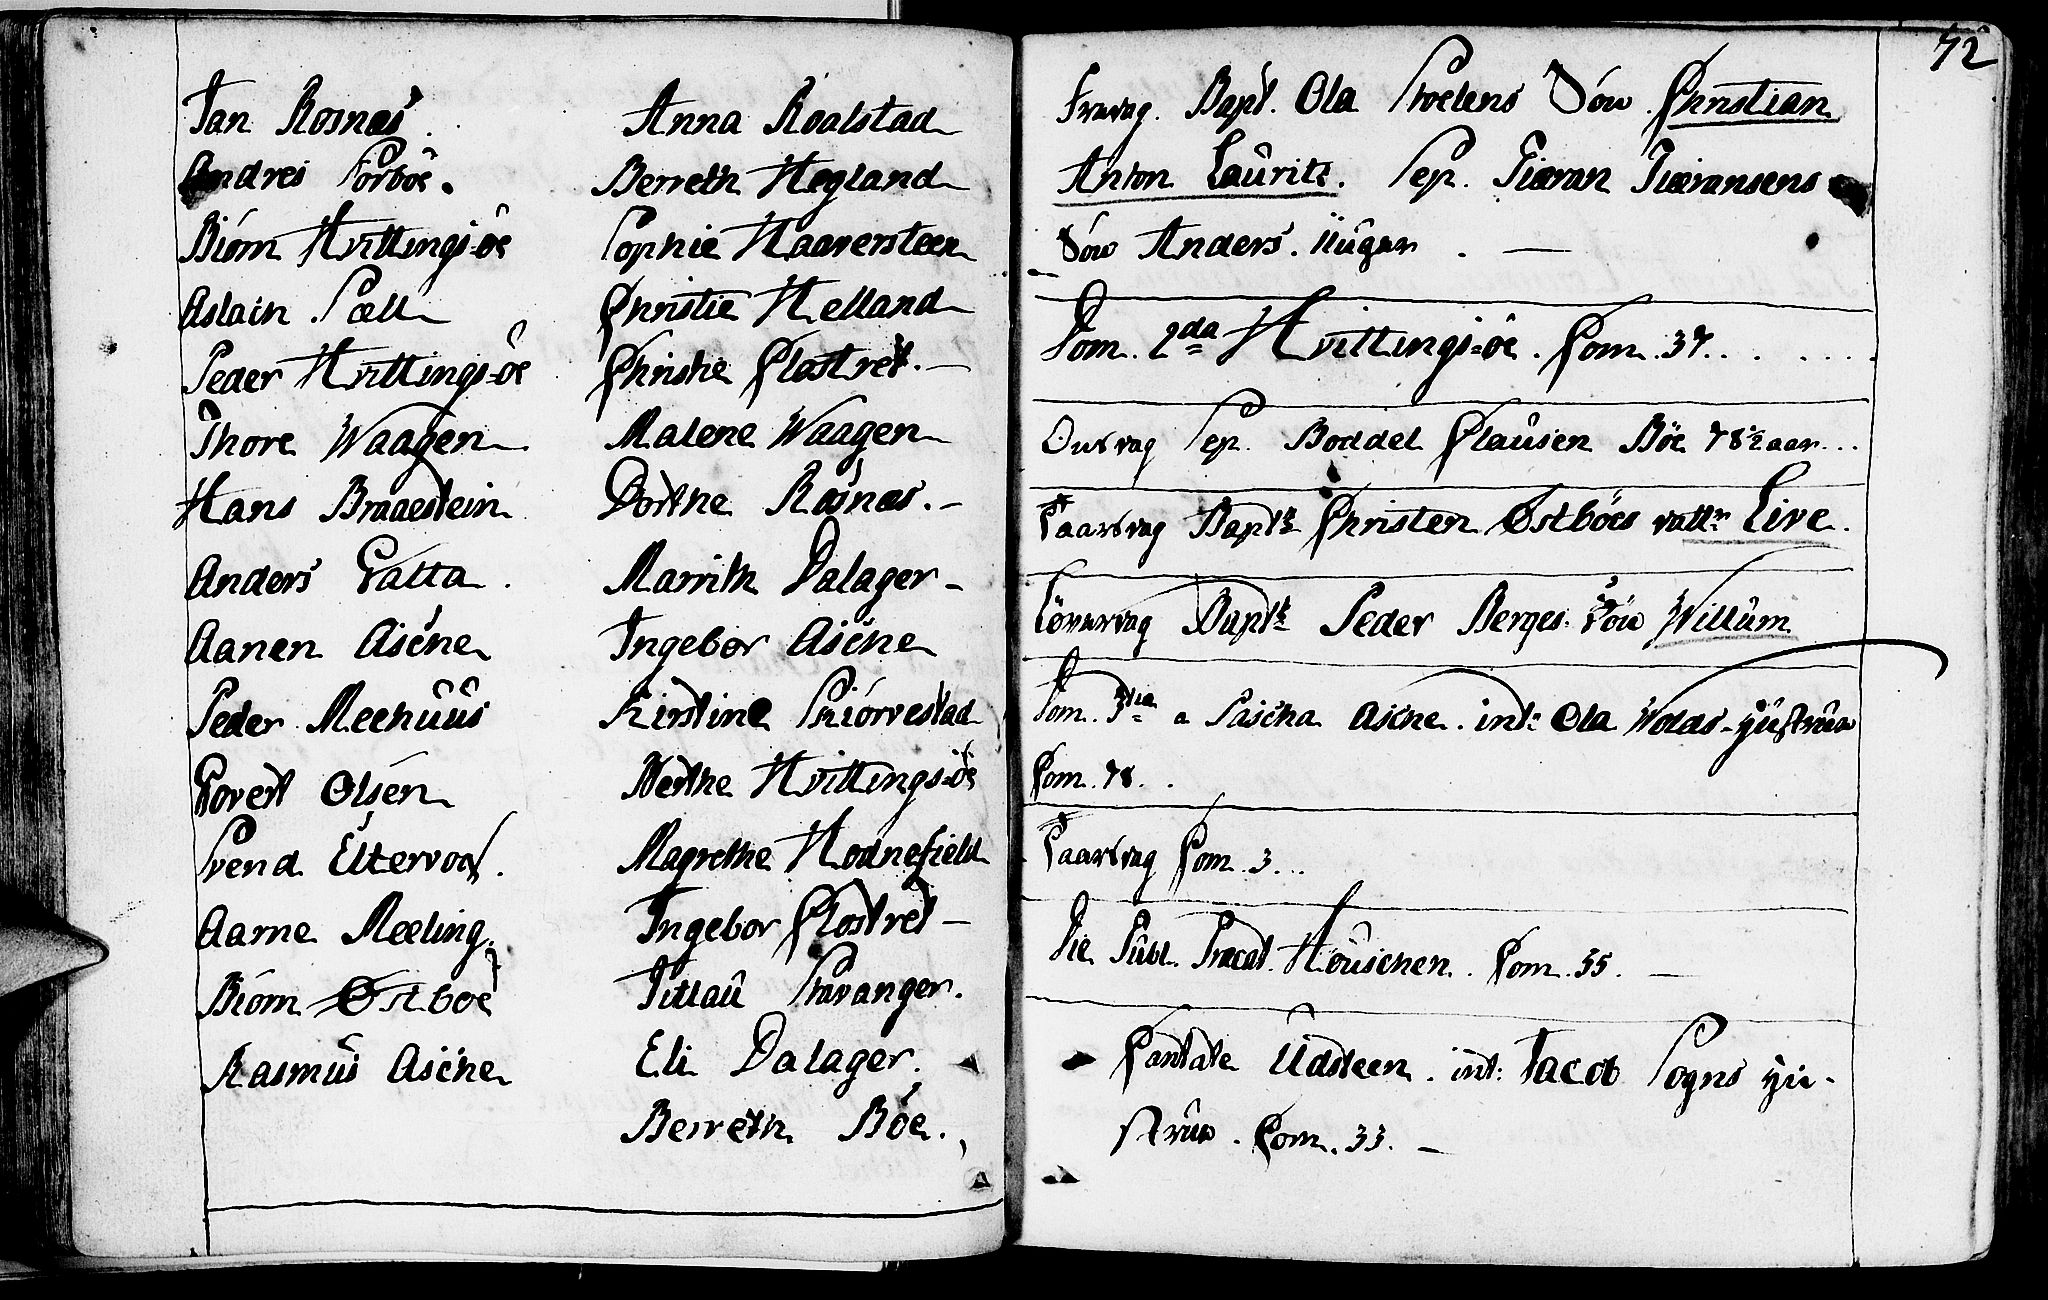 Jan Rosnæs.
Andres Sörböe.
Biörn Hvittings-öe
Aslach Sæll
Peder Hvittings-öe
Thore Waagen
Hans Braaestein
Anders Gatta.
Aanen Aschne
Peder Meehuus
Govert Olsen
Svend Eltervog.
Aarne Meeling.
Biörn Østböe
Rasmus Aschne
Anna Roalstad
Berreth Hegland
Sophie Haaversteen
Christie Helland
Christie Clastret.
Malene Waagen
Dorthe Rosnæs.
Marrith Dalager
Ingebor Aschne
Kirstine Skiörvestad
Merthe Hvittings-öe
Magrethe Hodnefield
Ingebor Clostret
Tittau Stavanger.
Eli Dalager.
Berreth Böe.
72
Fredag. Bapt. Ola Stoelens Sön Christian
Anton Lauritz. Sep. Tiæran Tiæransens
Sön Anders. uuger.
Dom. 2da Hvittings-öe. Com. 37.
Onsdag Sep. Boddel Clausen Böe 78½ aar...
Taarsdag Bapt: Christen Østböes datt: Live.
Löverdag Bapt: Peder Berges Sön Willum
Dom. 3tia a Pascha Aschne. int: Ola Wolds
Com. 78.
Taarsdag Com. 3...
Die Publ. Precat. Houschen. Com. 35.
Cantate Udsteen. int: Jacob Sogns hu-
strue. Com. 33.